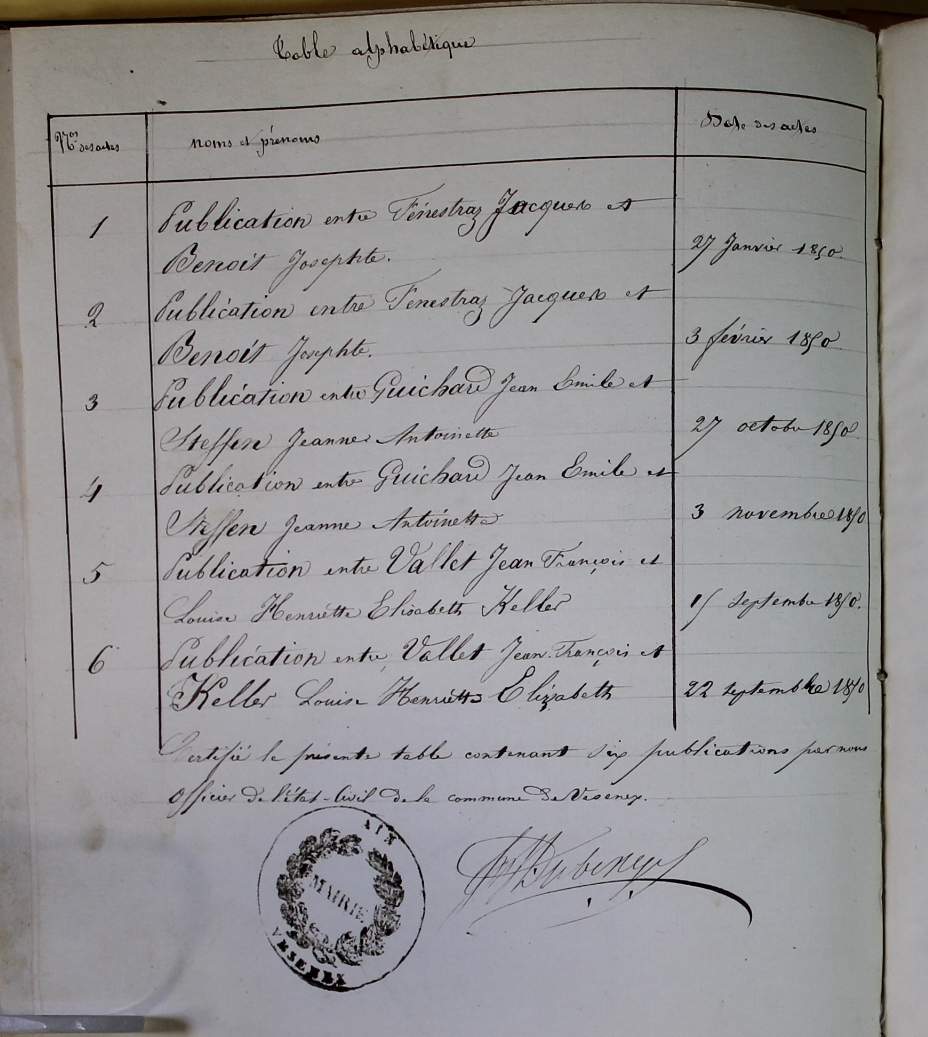 Table alphabétique
Nos des actes
noms et prénoms
Date des actes
1
Publication entre Fénestraz Jacques et
Benoit Josephte.
27 Janvier 1850.
2
Publication entre Fenestraz Jacques et
Benoit Josephte.
3 février 1850
3
Publication entre Guichard Jean Emile et
Steffen Jeanne Antoinette
27 octobre 1850
4
Publication entre Guichard Jean Emile et
Steffen Jeanne Antoinette
3 novembre 1850
5
Publication entre Vallet Jean François et
Louise Henriette Elisabeth Keller
15 septembre 1850.
6
Publication entre Vallet Jean François et
Keller Louise Henriette Elizabeth
22 septembre 1850
Certifié la présente table contenant six publications par nous
Officier de l'état-Civil de la commune de Vesenex.
AIN
MAIRIE
VESENEX